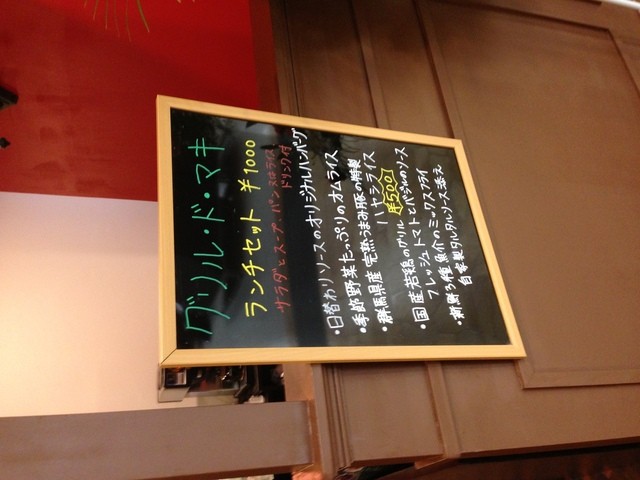 グリル・ド・マキ
ランチセット ¥1000
サラダとスープ、パン又はライス
ドリンク付
・日替わりソースのオリジナルハンバーグ
・季節野菜たっぷりのオムライス
・群馬県産 完熟うまみ豚の特製
ハヤシライス
¥500
・国産若鶏のグリル
フレッシュトマトとバジルのソース
・新鮮3種魚介のミックスフライ
自家製タルタルソース添え